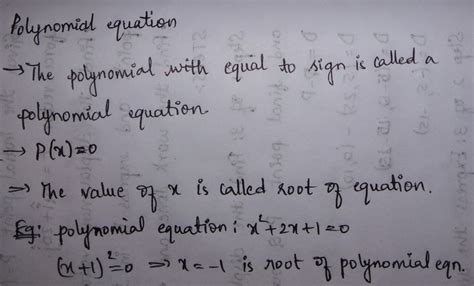 Polynomial equation
→ The polynomial with equal to sign is called a
polynomial equation.
→ P(x)=0
⇒ The value of x is called root of equation.
Eg: polynomial equation: x²+2x+1=0
(x+1)²=0 ⇒ x=-1 is root of polynomial eqn.